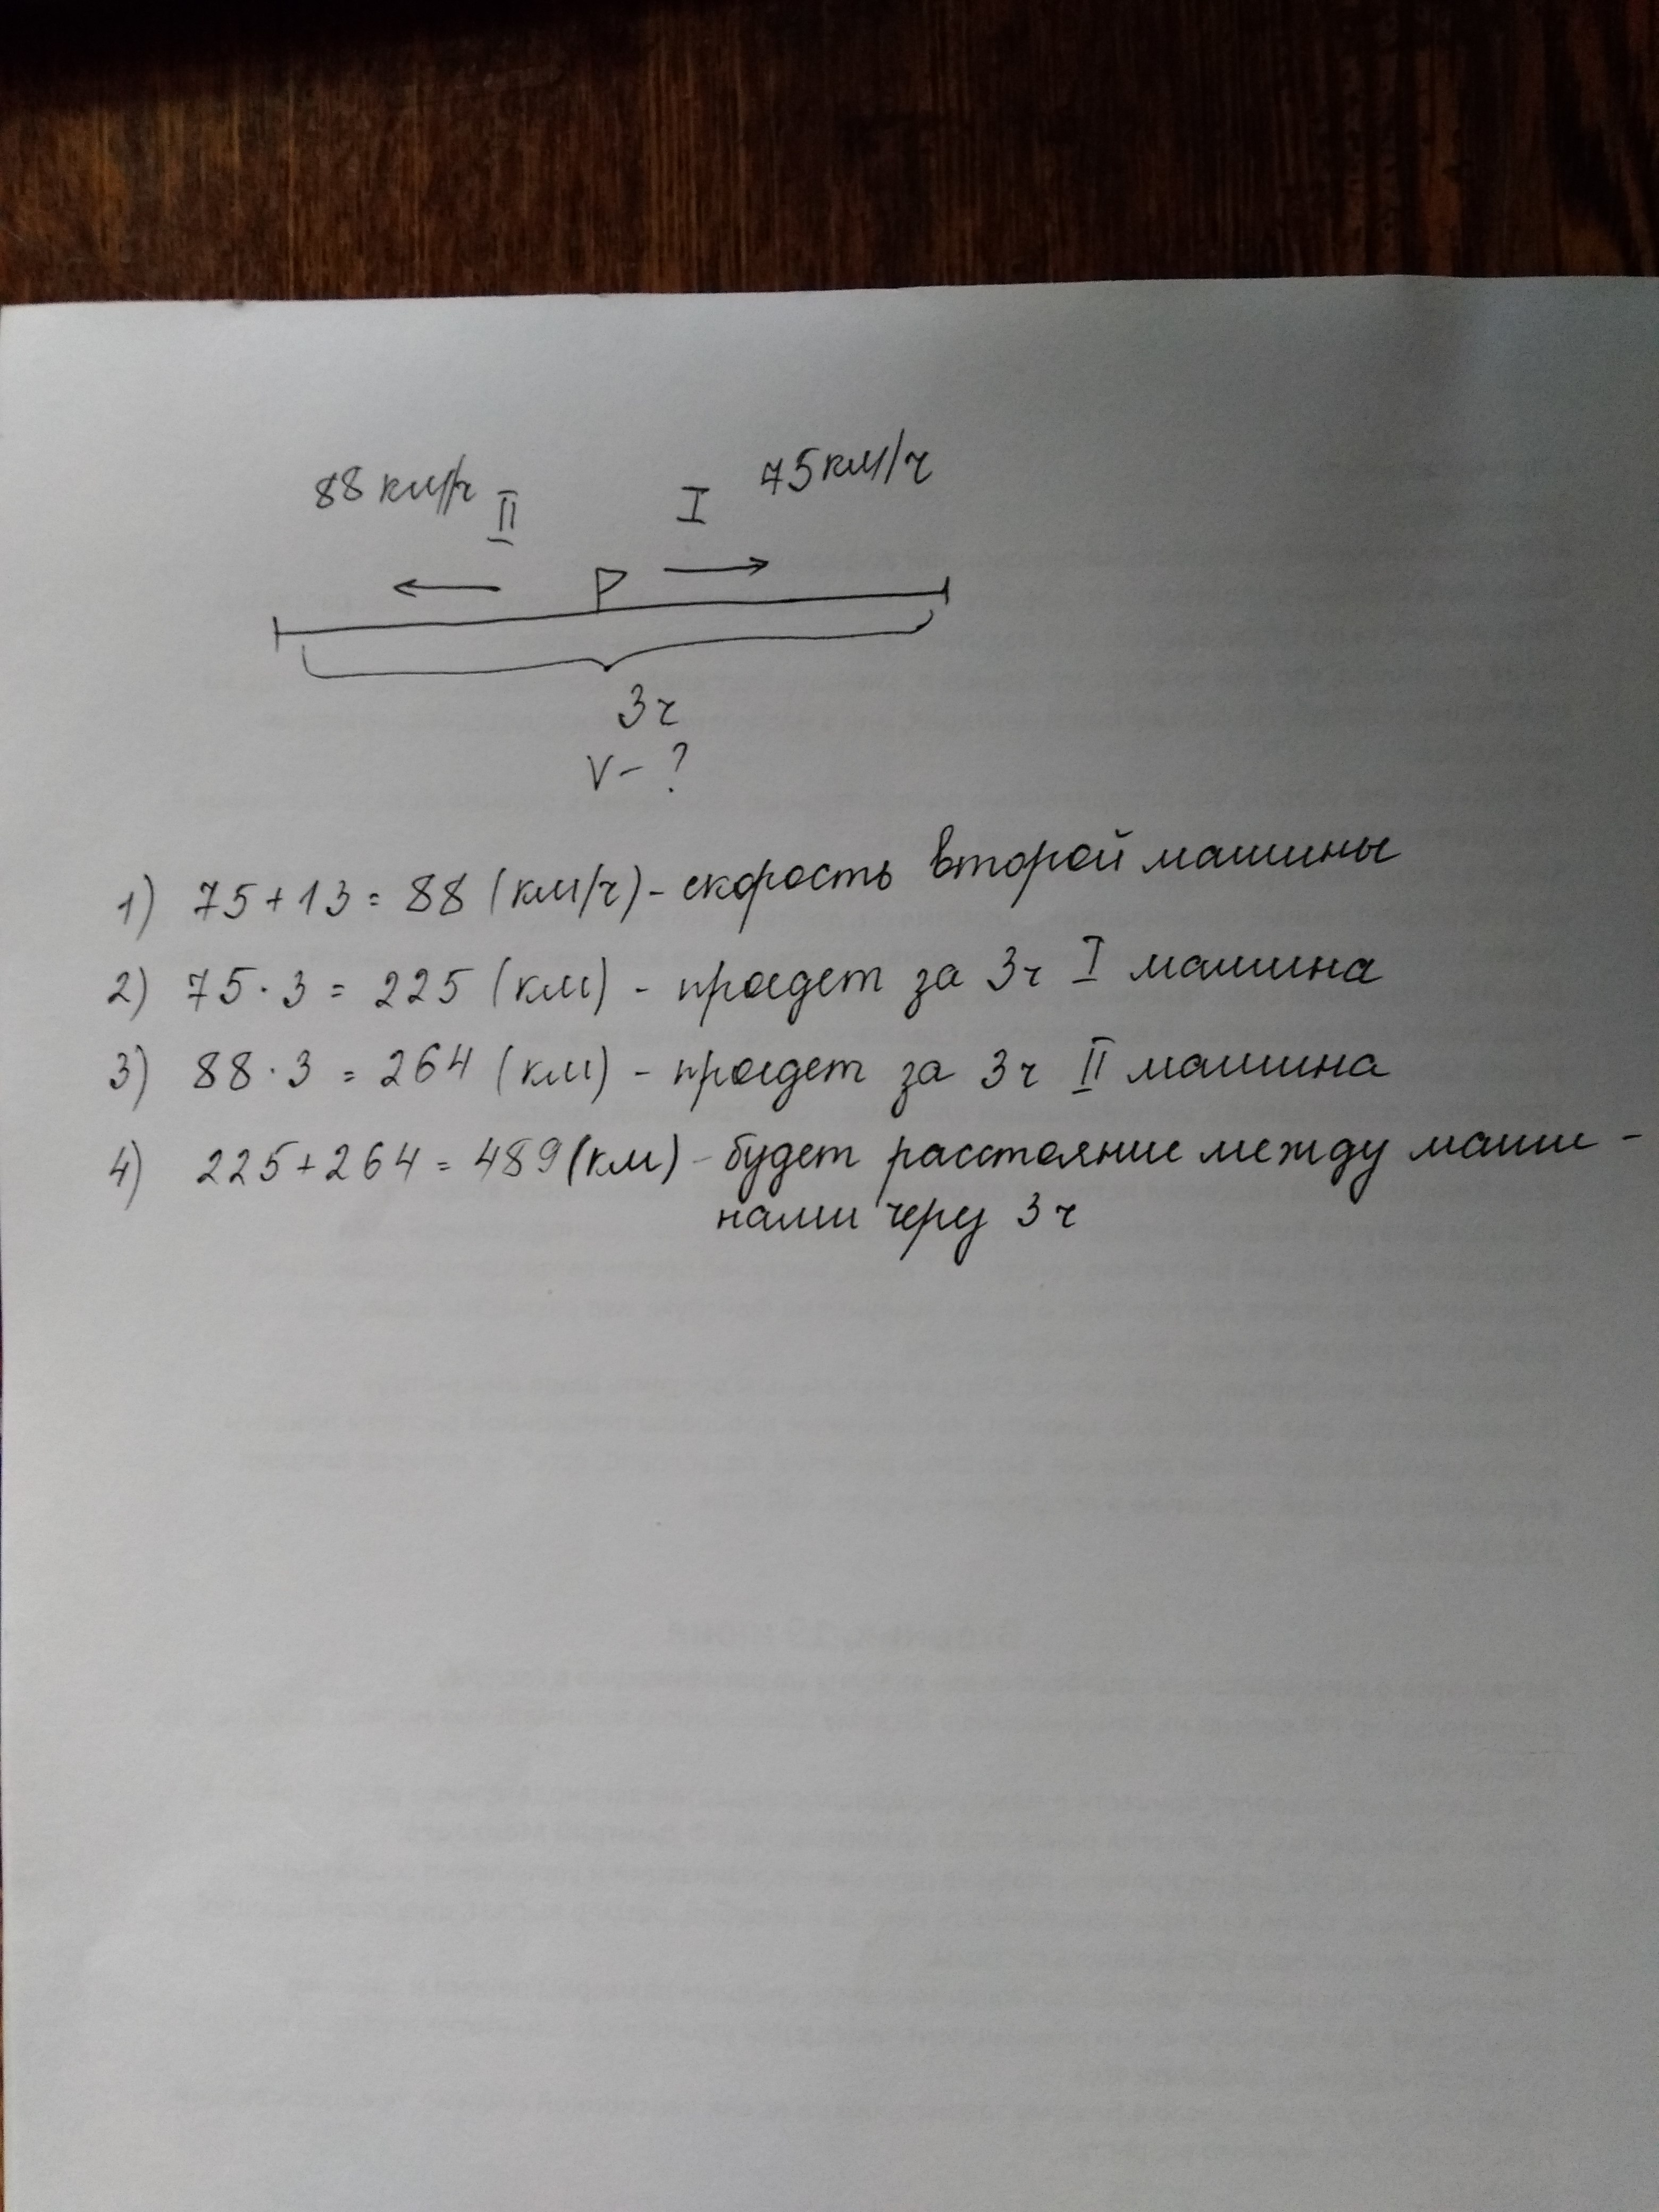 88 км/ч II I 75 км/ч
3ч
V - ?
1) 75 + 13 = 88 (км/ч) - скорость второй машины
2) 75 · 3 = 225 (км) - проедет за 3ч I машина
3) 88 · 3 = 264 (км) - проедет за 3ч II машина
4) 225 + 264 = 489 (км) - будет расстояние между маши -
нами через 3 ч